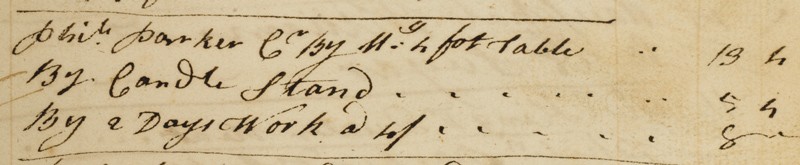 Phil. Parker Cr By My 4 fot Table .. 13 4
By Candle Stand . . . . . . . 5 4
By 2 Days Work @ 4/ . . . . . 8 –